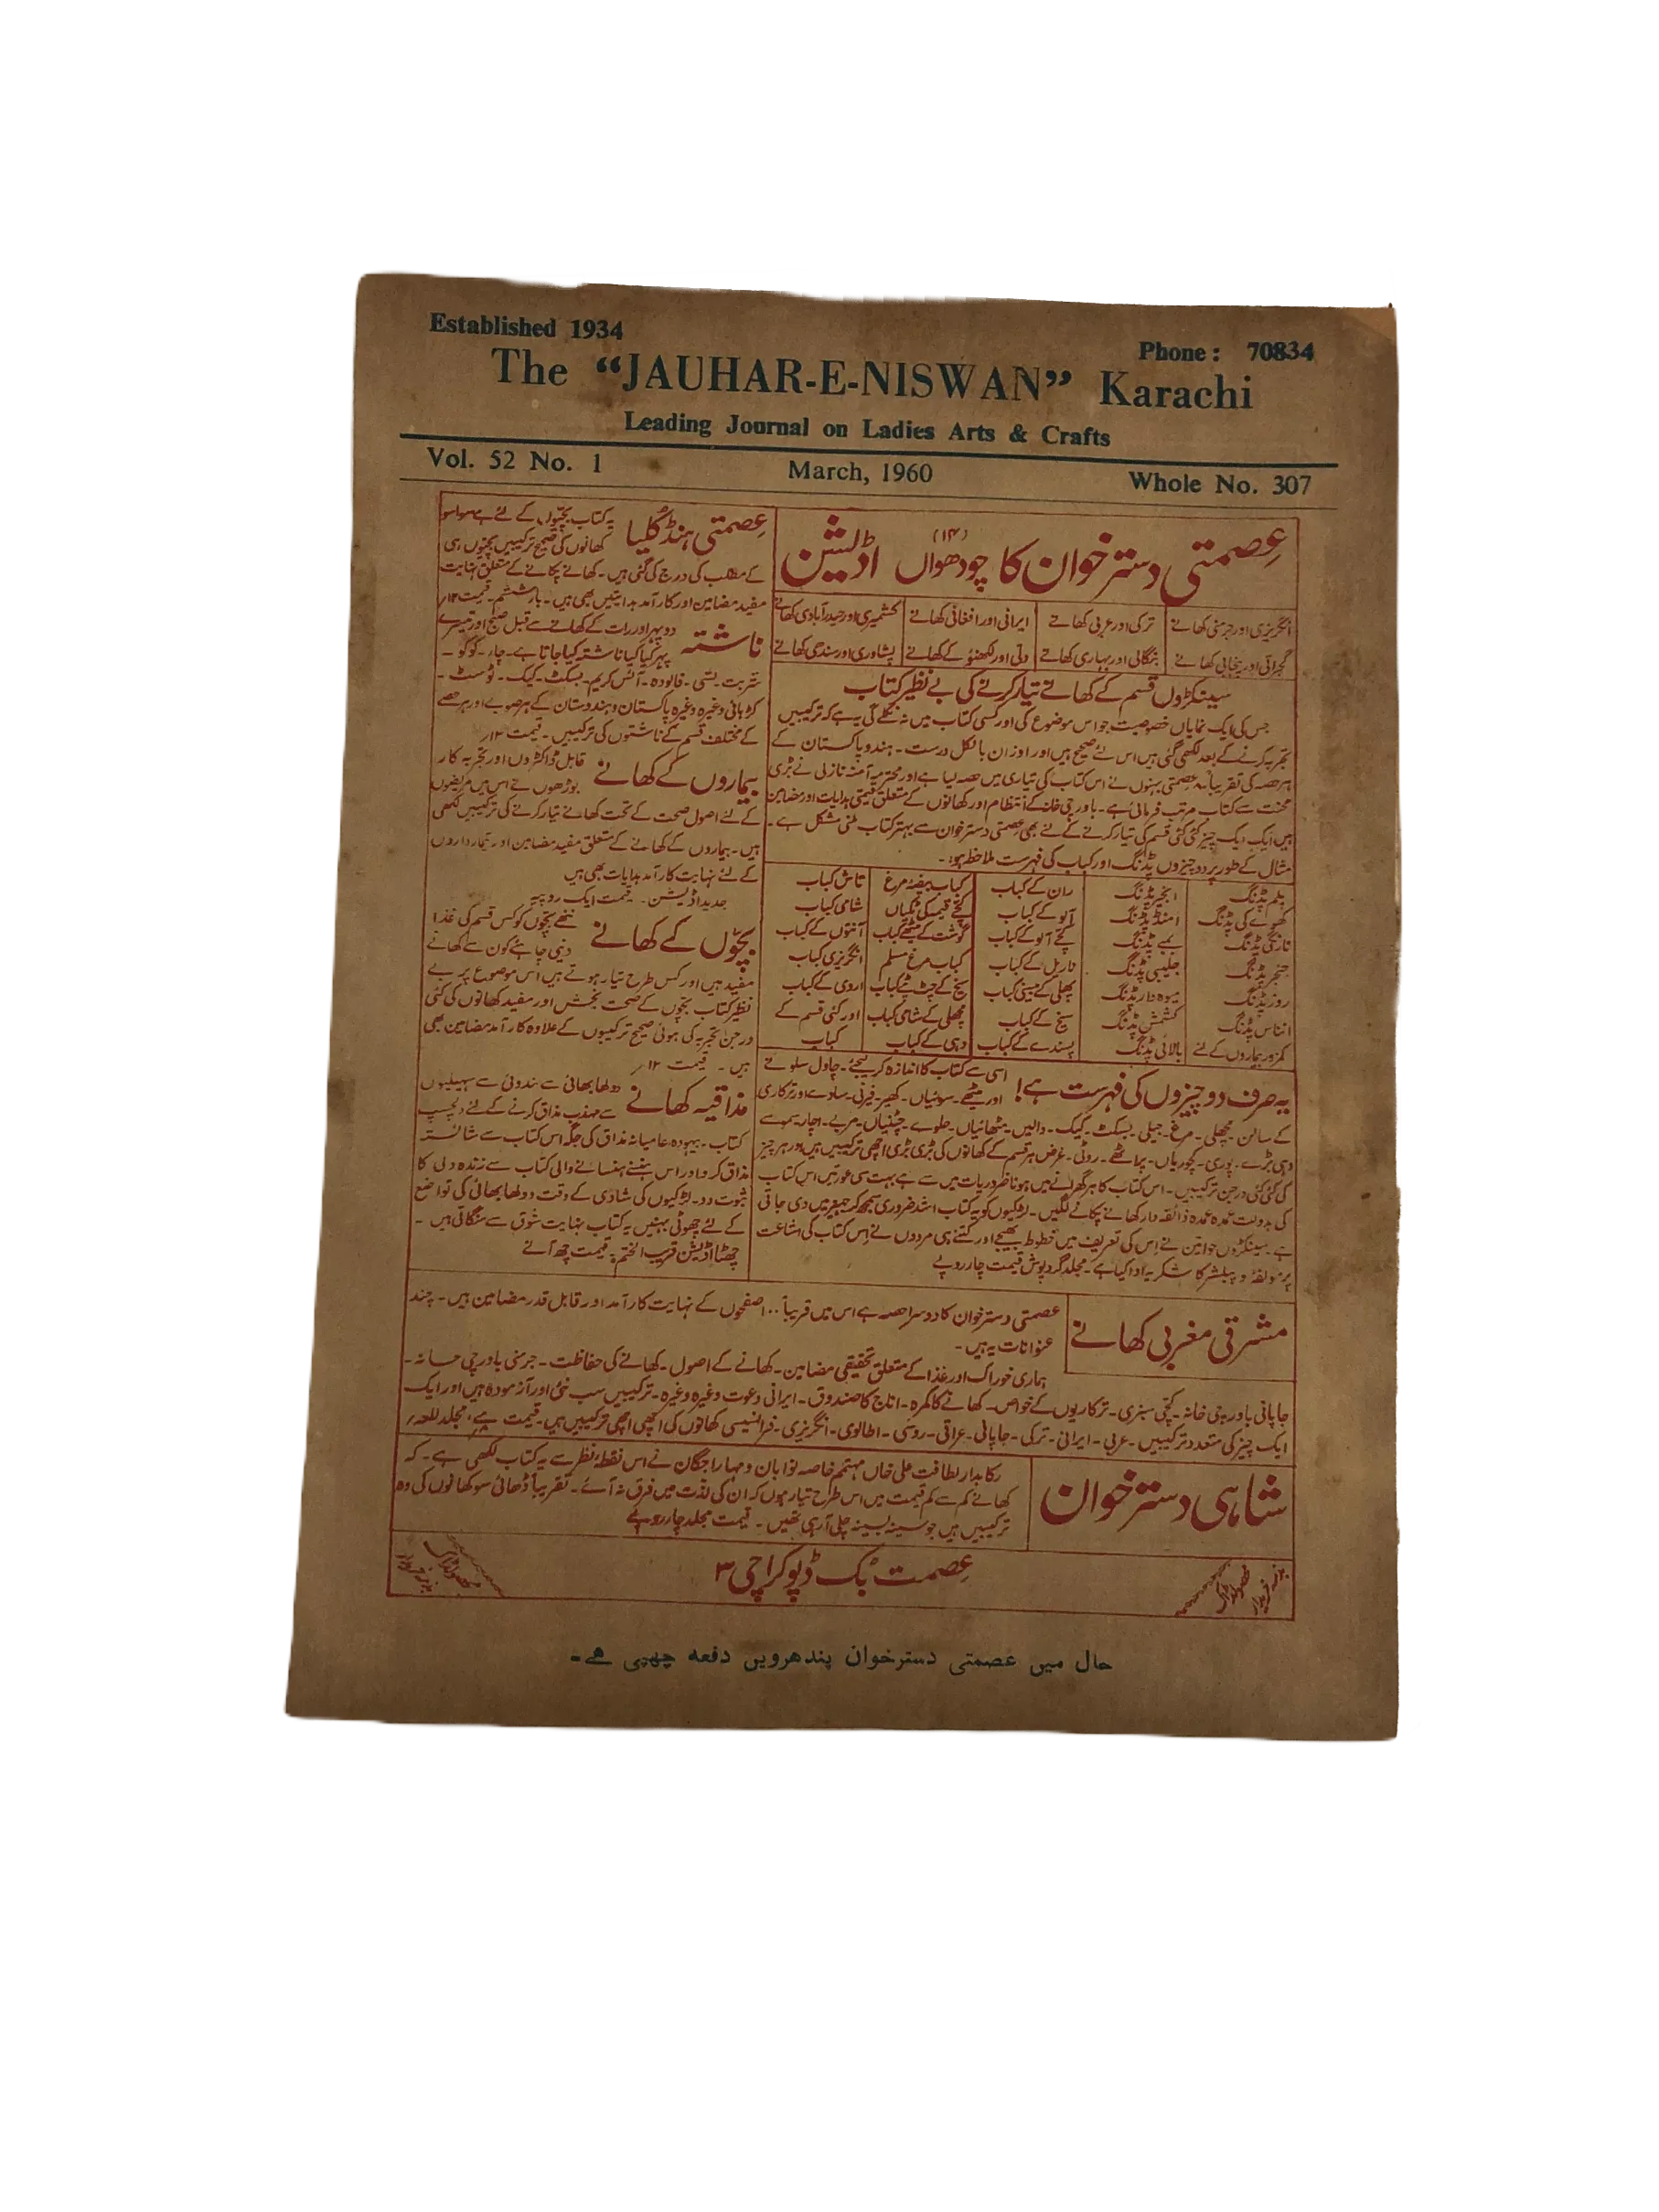 Established 1934
Phone : 70834
The “JAUHAR-E-NISWAN” Karachi
Leading Journal on Ladies Arts & Crafts
Vol. 52 No. 1
March, 1960
Whole No. 307
عصمتی دسترخوان کا چودھواں (۱۴) اڈیشن
انگریزی اور جرمنی کھانے
ترکی اور عربی کھانے
ایرانی اور افغانی کھانے
کشمیری اور حیدرآبادی کھانے
گجراتی اور پنجابی کھانے
بنگالی اور بہاری کھانے
دلی اور لکھنؤ کے کھانے
پشاوری اور سندھی کھانے
سینکڑوں قسم کے کھانے تیار کرنے کی بے نظیر کتاب
جس کی ایک نمایاں خصوصیت جو اس موضوع کی اور کسی کتاب میں نہ نکلے گی یہ ہے کہ ترکیبیں
تجربہ کرنے کے بعد لکھی گئی ہیں اس لئے صحیح ہیں اور اوزان بالکل درست۔ ہند و پاکستان کے
ہر حصہ کی تقریباً عصمتی بہنوں نے اس کتاب کی تیاری میں حصہ لیا ہے اور محترمہ آمنہ نازلی نے بڑی
محنت سے کتاب مرتب فرمائی ہے۔ باورچی خانہ کے انتظام اور کھانوں کے متعلق قیمتی ہدایات اور مضامین
ہیں ایک ایک چیز کئی کئی قسم کی تیار کرنے کے لئے بھی عصمتی دسترخوان سے بہتر کتاب ملنی مشکل ہے۔
مثال کے طور پر دو چیزوں پڈنگ اور کباب کی فہرست ملاحظہ ہو:۔
پلم پڈنگ
انجیر پڈنگ
ران کے کباب
کباب بیضۂ مرغ
تاش کباب
کھوئے کی پڈنگ
امنڈ پڈنگ
آلو کے کباب
کچے قیمہ کی ٹکیاں
شامی کباب
نارنگی پڈنگ
بمبے پڈنگ
کچے آلو کے کباب
گوشت کے میٹھے کباب
آنتوں کے کباب
جنجر پڈنگ
جلیبی پڈنگ
ناریل کے کباب
کباب مرغ مسلم
انگریزی کباب
روز پڈنگ
میوہ دار پڈنگ
سیخ کے چٹ پٹے کباب
اروی کے کباب
انناس پڈنگ
کشمش پڈنگ
سیخ کے کباب
مچھلی کے شامی کباب
اور کئی قسم کے
کمزور بیماروں کے لئے
بالائی پڈنگ
پسندے کے کباب
دہی کے کباب
کباب
یہ صرف دو چیزوں کی فہرست ہے! اسی سے کتاب کا اندازہ کر لیجئے۔ چاول سلونے
اور میٹھے۔ سوئیاں۔ کھیر۔ فیرنی۔ سادے اور ترکاری
کے سالن۔ مچھلی۔ مرغ۔ جیلی۔ بسکٹ۔ کیک۔ دالیں۔ مٹھائیاں۔ حلوے۔ چٹنیاں۔ مربے۔ اچار۔ سموسے
دہی بڑے۔ پوری۔ کچوریاں۔ پراٹھے۔ روٹی۔ غرض ہر قسم کے کھانوں کی بڑی بڑی اچھی ترکیبیں ہیں اور ہر چیز
کی کئی کئی درجن ترکیبیں۔ اس کتاب کا ہر گھرانے میں ہونا ضروریات میں سے ہے بہت سی عورتیں اس کتاب
کی بدولت عمدہ عمدہ ذائقہ دار کھانے پکانے لگیں۔ لڑکیوں کو یہ کتاب اشد ضروری سمجھ کر جہیز میں دی جاتی
ہے۔ سینکڑوں خواتین نے اس کی تعریف میں خطوط بھیجے اور کتنے ہی مردوں نے اس کتاب کی اشاعت
پر مؤلفہ و پبلشر کا شکریہ ادا کیا ہے۔ مجلد گرد پوش قیمت چار روپے
عصمتی ہنڈکلیا
یہ کتاب بچیوں کے لئے ہے
کھانوں کی صحیح ترکیبیں بچیوں ہی
کے مطلب کی درج کی گئی ہیں۔ کھانے پکانے کے متعلق نہایت
مفید مضامین اور کارآمد ہدایتیں بھی ہیں۔ بار ششم۔ قیمت ۱۲؍
ناشتہ
دوپہر اور رات کے کھانے سے قبل صبح اور تیسرے
پہر کیا کیا ناشتہ کیا جاتا ہے۔ چار۔ کوکو۔
شربت۔ لسی۔ فالودہ۔ آئس کریم۔ بسکٹ۔ کیک۔ ٹوسٹ۔
وغیرہ وغیرہ پاکستان و ہندوستان کے ہر صوبے اور ہر حصے
کے مختلف قسم کے ناشتوں کی ترکیبیں۔ قیمت ۱۲؍
بیماروں کے کھانے
قابل ڈاکٹروں اور تجربہ کار
بوڑھوں نے اس میں مریضوں
کے لئے اصول صحت کے تحت کھانے تیار کرنے کی ترکیبیں لکھی
ہیں۔ بیماروں کے کھانے کے متعلق مفید مضامین اور تیمارداروں
کے لئے نہایت کارآمد ہدایات بھی ہیں
جدید اڈیشن۔ قیمت ایک روپیہ
بچوں کے کھانے
ننھے بچوں کو کس قسم کی غذا
دینی چاہئے کون سے کھانے
مفید ہیں اور کس طرح تیار ہوتے ہیں اس موضوع پر بے
نظیر کتاب بچوں کے صحت بخش اور مفید کھانوں کی کئی
درجن تجربہ کی ہوئی صحیح ترکیبوں کے علاوہ کارآمد مضامین بھی
ہیں۔ قیمت ۱۲؍
مذاقیہ کھانے
دولھا بھائی سے نندوئی سے سہیلیوں
سے مہذب مذاق کرنے کے لئے دلچسپ
کتاب۔ بیہودہ عامیانہ مذاق کی جگہ اس کتاب سے شائستہ
مذاق کرو اور اس ہنسنے ہنسانے والی کتاب سے زندہ دلی کا
ثبوت دو۔ لڑکیوں کی شادی کے وقت دولھا بھائی کی تواضع
کے لئے چھوٹی بہنیں یہ کتاب نہایت شوق سے منگاتی ہیں۔
چھٹا اڈیشن قریب الختم۔ قیمت چھ آنے
مشرقی مغربی کھانے
عصمتی دسترخوان کا دوسرا حصہ ہے اس میں قریباً ۱۰۰ صفحوں کے نہایت کارآمد اور قابل قدر مضامین ہیں۔ چند
عنوانات یہ ہیں۔
ہماری خوراک اور غذا کے متعلق تحقیقی مضامین۔ کھانے کے اصول۔ کھانے کی حفاظت۔ جرمنی باورچی خانہ۔
جاپانی باورچی خانہ۔ کچی سبزی۔ ترکاریوں کے خواص۔ کھانے کا کمرہ۔ اناج کا صندوق۔ ایرانی دعوت وغیرہ وغیرہ۔ ترکیبیں سب نئی اور آزمودہ ہیں اور ایک
ایک چیز کی متعدد ترکیبیں۔ عربی۔ ایرانی۔ ترکی۔ جاپانی۔ عراقی۔ روسی۔ اطالوی۔ انگریزی۔ فرانسیسی کھانوں کی اچھی اچھی ترکیبیں ہیں۔ قیمت
شاہی دسترخوان
رکابدار لطافت علی خاں مہتمم خاصہ نوابان و مہاراجگان نے اس نقطۂ نظر سے یہ کتاب لکھی ہے۔ کہ
کھانے کم سے کم قیمت میں اس طرح تیار ہوں کہ ان کی لذت میں فرق نہ آئے۔ تقریباً ڈھائی سو کھانوں کی وہ
ترکیبیں ہیں جو سینہ بسینہ چلی آرہی تھیں۔ قیمت مجلد چار روپے
عصمت بک ڈپو کراچی ۳
محصول ڈاک بذمہ خریدار
حال میں عصمتی دسترخوان پندھرویں دفعہ چھپی ھے۔